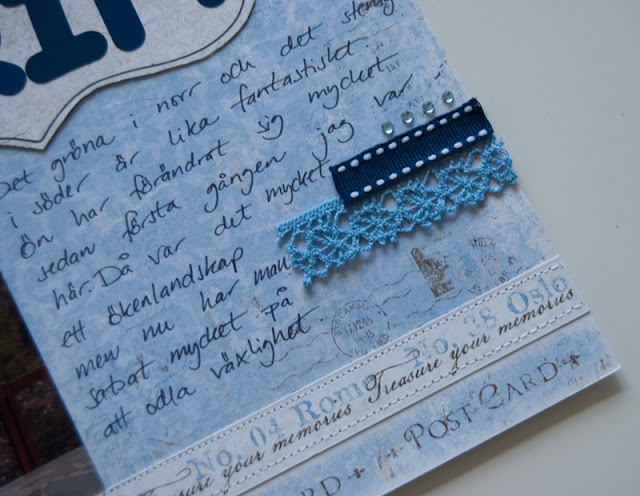 Det gröna i norr och det stenig
i söder är lika fantastiskt
Ön har förändrat sig mycket
sedan första gången jag var
här. Då var det mycket
ett ökenlandskap
men nu har man
satsat mycket på
att odla växlighet.
No. 04 Rom No. 28 Oslo
Treasure your memories Treasure your memories
POST CARD